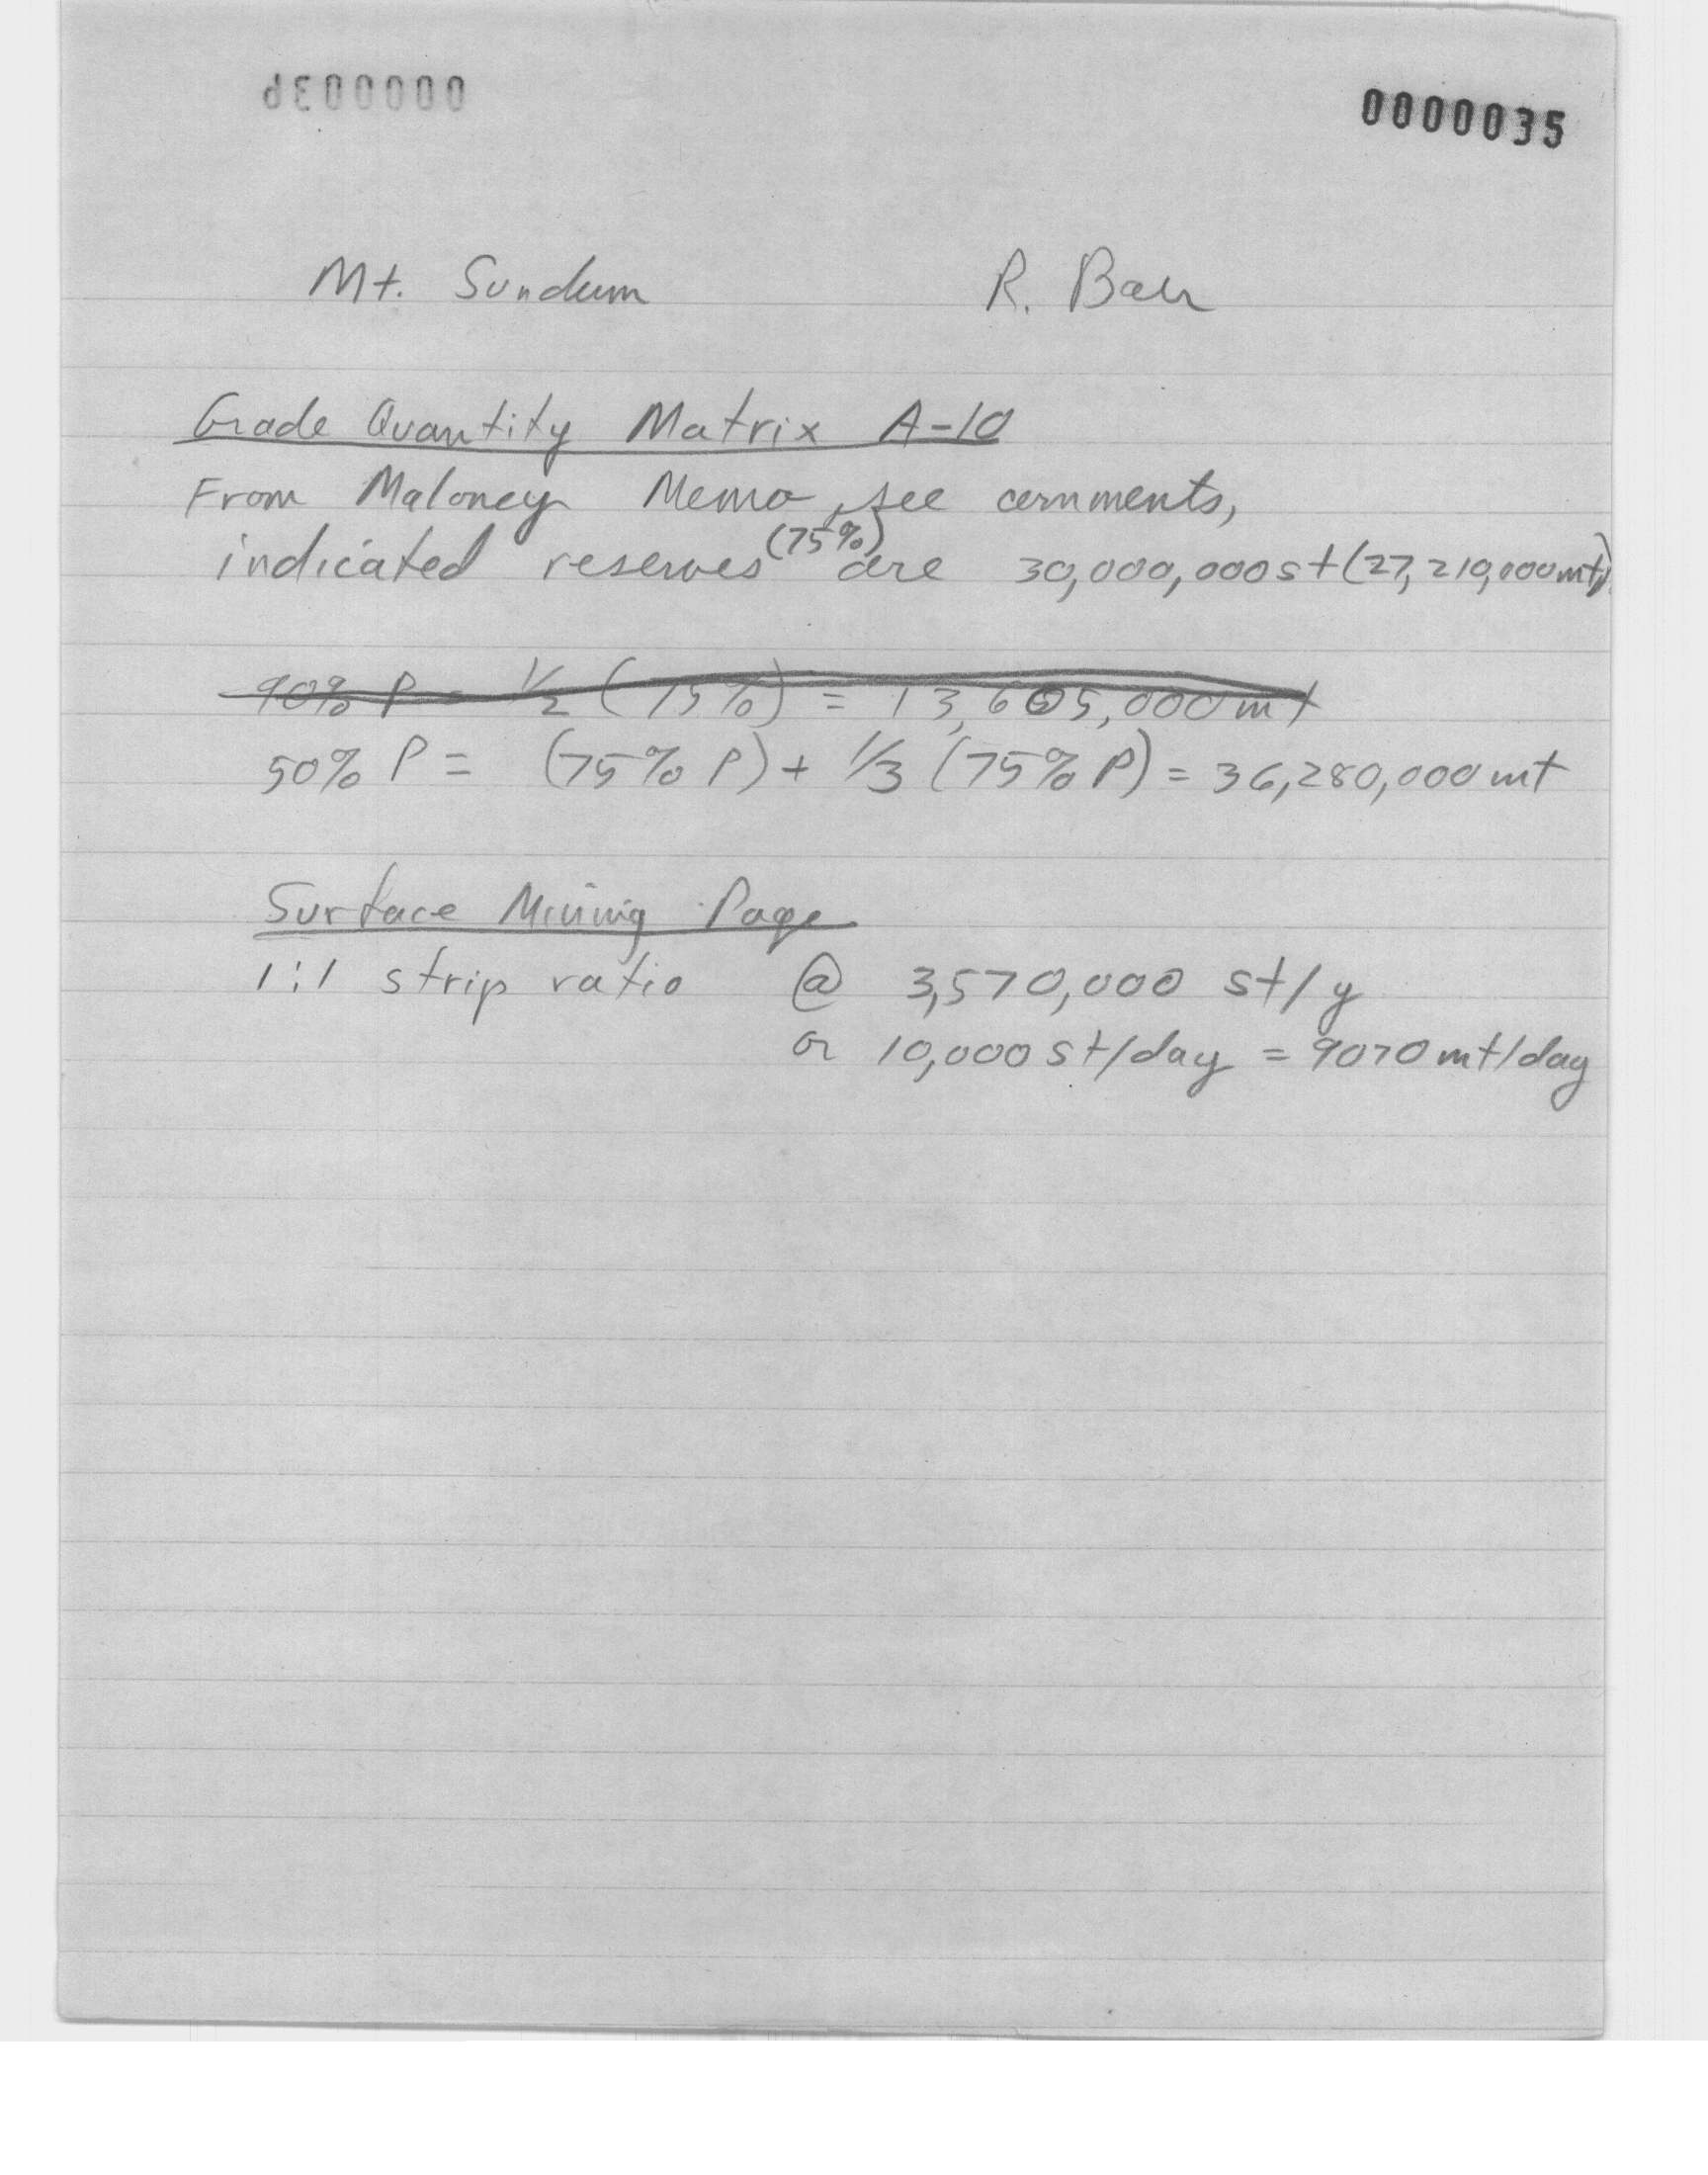 0000035
Mt. Sundum R. Baer
Grade Quantity Matrix A-10
From Maloney Memo, see comments,
indicated reserves (75%) are 30,000,000 st (27,210,000 mt)
90% P = 1/2 (75%) = 13,605,000 mt
50% P = (75% P) + 1/3 (75% P) = 36,280,000 mt
Surface Mining Page
1:1 strip ratio @ 3,570,000 st/y
or 10,000 st/day = 9070 mt/day